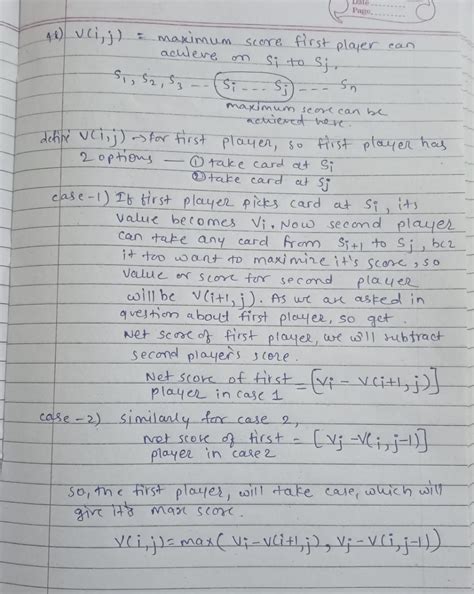 Date
Page
q1) V(i,j) = maximum score first player can
achieve on Si to Sj.
S1, S2, S3 -- (Si ... Sj) --- Sn
maximum score can be
achieved here.
define V(i,j) → for first player, so first player has
2 options — ① take card at Si
② take card at Sj
case-1) If first player picks card at Si, its
value becomes Vi. Now second player
can take any card from Si+1 to Sj, bcz
it too want to maximize it's score, so
value or score for second player
will be V(i+1, j). As we are asked in
question about first player, so get
Net score of first player, we will subtract
second player's score.
Net score of first = [Vi - V(i+1, j)]
player in case 1
case-2) similarly for case 2,
Net score of first = [Vj - V(i, j-1)]
player in case 2
so, the first player, will take case, which will
give it's max score.
V(i,j) = max( Vi - V(i+1, j) , Vj - V(i, j-1))